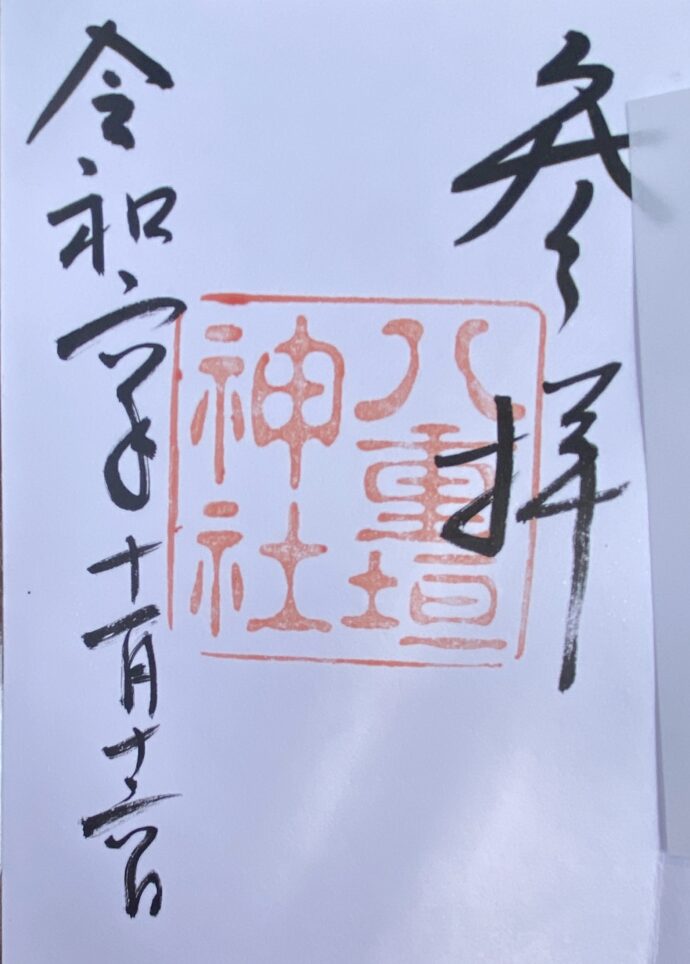 参拝
八重垣
神社
令和六年十一月十六日